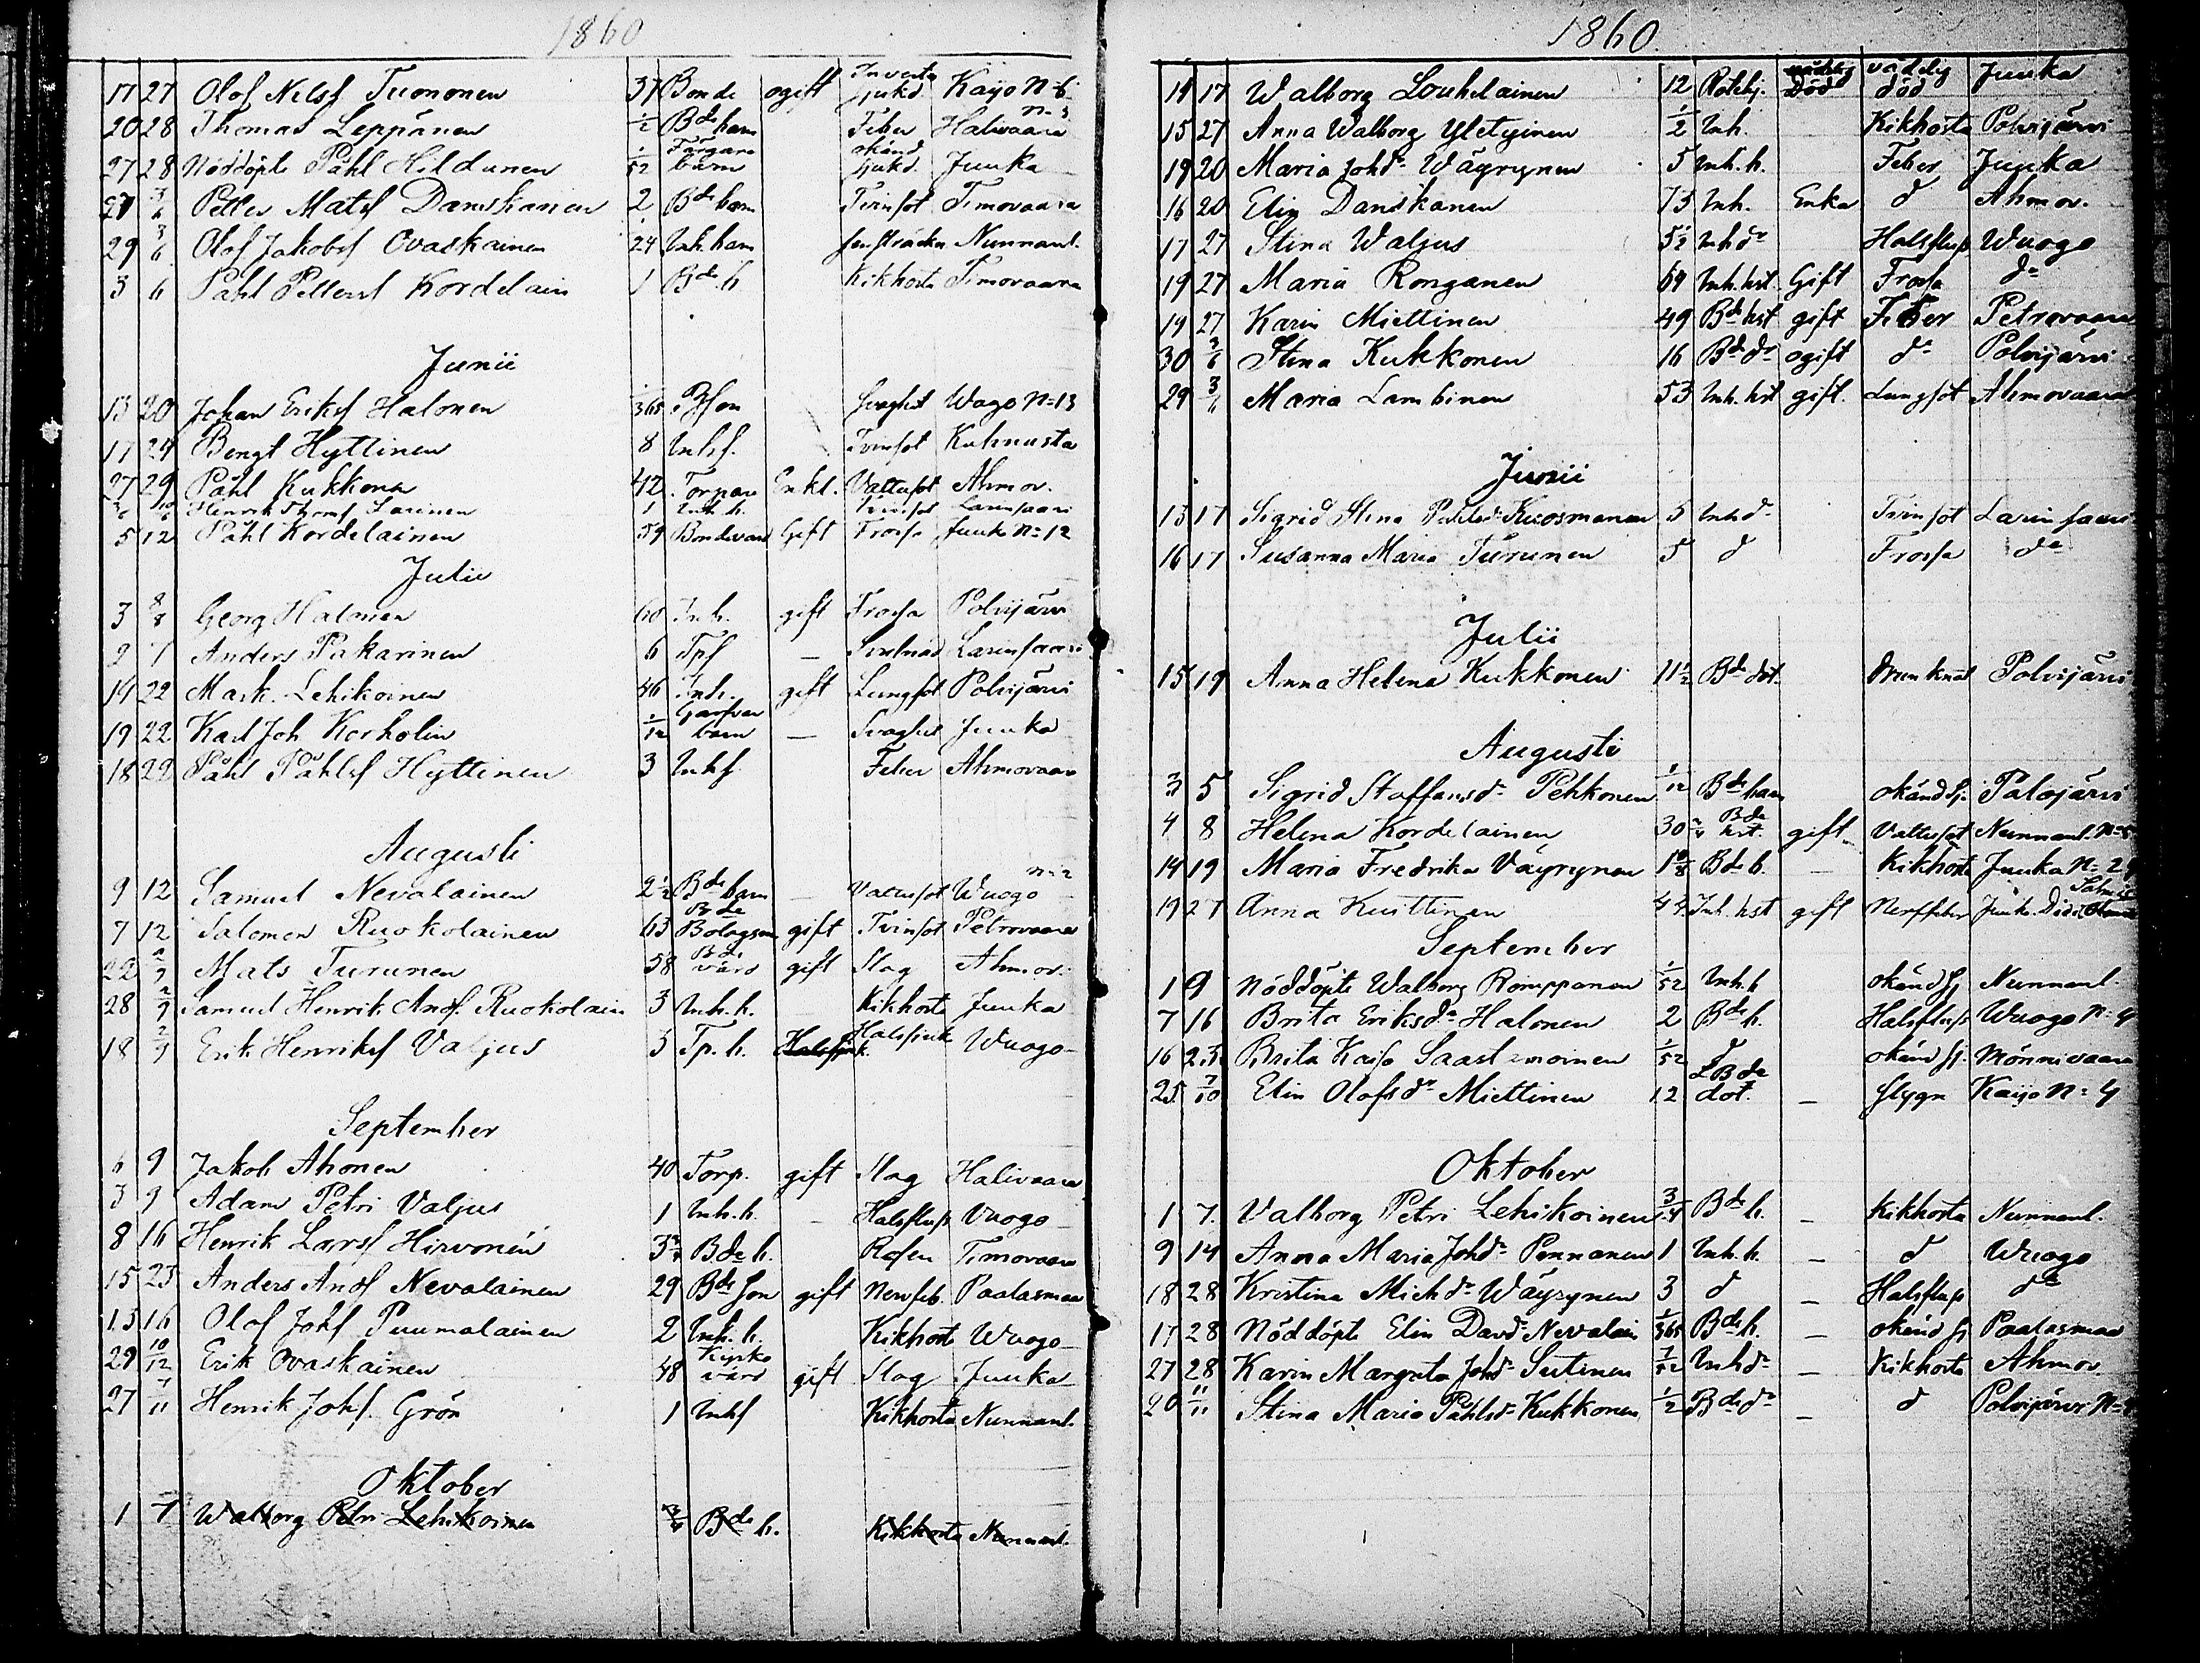 1860
17 27 Olof Nilsf Tuononen 37 Bonde ogift Invertes sjukd. Kajo N=6
20 28 Thomas Leppänen 1/2 Bde barn Feber Halivaara
27 28 Nöddöpte Påhl Hildunen 1/52 Färgare barn okänd sjukd. Juuka
27 3/6 Petter Matsf Danskanen 2 Bde barn Tvinsot Timovaara
29 3/6 Olof Jakobsf Ovaskainen 24 Inh. barn Nunnanl.
3 6 Påhl Pettersf Kordelain 1 Bde. b Kikhosta Timovaara
Junii
13 20 Johan Eriksf Halonen 1/365 Bson Svaghet Wuogo N=13
17 24 Bengt Hyttinen 8 Inhs. Tvinsot Kuhnusta
27 29 Påhl Kukkonen 42 Torpare Enkl. Vattusot Ahmov.
3/6 10/6 Henrik Thomsf Sarinen 1 Inh. b. Tvinsot Larinsaari
5 12 Påhl Kordelainen 59 Bondevärd Gift Frossa Juuka N=12
Julii
3 8/8 Georg Halonen 60 Inh. gift Frossa Polvijärvi
2 7 Anders Pakarinen 6 Tpf — Larinsaari
19 22 Mark. Lehikoinen 46 Inh. gift Lungsot Polvijärvi
19 22 Karl Joh Korholin 1/12 Garfvar barn — Svaghet Juuka
18 22 Påhl Påhlsf Hyttinen 3 Inhf Feber Ahmovaar
Augusti
9 12 Samuel Nevalainen 2 1/2 Bde barn — Vattusot Wuogo N=2
7 12 Salomon Ruokolainen 63 Bde Bolagsm gift Tvinsot Petrovaara
22 2/9 Mats Turunen 58 Bde värd gift Slag Ahmov.
28 2/9 Samuel Henrik Andf. Ruokolain 3 Inh. b. Kikhosta Juuka
18 2/9 Erik Henriksf Valjus 3 Tp. b. Halssjuk. Halssjuk Wuogo
September
6 9 Jakob Ahonen 40 Torp. gift Slag Halivaara
3 9 Adam Petri Valjus 1 Inh. b. — Halsfluss Vuogo
8 16 Henrik Larsf Hirvonen 3 Bde b. Rosen Timovaara
15 23 Anders Andf Nevalainen 29 Bde son gift Nervfeb. Paalasmaa
13 16 Olof Johf Puumalainen 2 Inh. b. Kikhosta Wuogo
29 10/12 Erik Ovaskainen 48 Kyrko värd gift Slag Juuka
27 7/11 Henrik Johf. Grön 1 Inhf Kikhosta Nunnanl.
Oktober
1 7 Walborg Petri Lehikoinen 3/4 Bde b. Kikhosta Nunnanl.
1860.
14 17 Walborg Louhelainen 12 Rotehj. död vådlig död Juuka
15 27 Anna Walborg Yletyinen 1/2 Inh. Kikhosta Polvijärvi
19 20 Maria Johdr. Wäyrynen 5 Inh. b. Feber Juuka
16 20 Elin Danskanen 73 Inh. Enka d Ahmov.
17 27 Stina Waljus 5 1/2 Inh dr Halsfluss Wuogo
19 27 Maria Ronganen 64 Inh. hst. Gift Frossa do
19 27 Karin Miettinen 49 Bde hst gift Feber Petrovaara
30 3/6 Stina Kukkonen 16 Bde dr ogift do Polvijärvi
29 3/6 Maria Lambinen 53 Inh. hst gift. Lungsot Ahmovaara
Junii
13 17 Sigrid Stina Påhlsdr Kuosmanen 5 Inh dr Tvinsot Larinsaari
16 17 Susanna Maria Turunen 5 d Frossa do
Julii
15 19 Anna Helena Kukkonen 11 1/2 Bde dot. drunknat Polvijärvi
Augusti
3 5 Sigrid Staffansdr Pehkonen 1/12 Bde barn okänd sj. Polvijärvi
4 8 Helena Kordelainen 30 Bde hst. gift Vattusot Nunnanl.
14 19 Maria Fredrika Väyrynen 1 Bde b. — Kikhosta Juuka
19 27 Anna Kuittinen Inh. hst gift Nervfeber Juuka
September
1 9 Nöddöpte Walborg Romppanen 1/52 Inh. b okänd sj Nunnanl.
7 16 Brita Eriksdr Halonen 2 Bde b. Halsfluss Wuogo N=4
16 23 Brita Kaisa Saastamoinen 1/52 d okänd sj. Mönnivaara
25 7/10 Elin Olofsdr Miettinen 12 LBde dot. — Slygn Kajo N=4
Oktober
1 7. Valborg Petri Lehikoinen 3/4 Bde b. — Kikhosta Nunnanl.
9 14 Anna Maria Johdr Pennanen 1 Inh. b. — d Wuogo
18 28 Kristina Michdr Wäyrynen 3 d — Halsfluss do
17 28 Nöddöpte Elin Davdr Nevalain 1/365 Bde b. — okänd sj Paalasmaa
27 28 Karin Margreta Johdr Sutinen 7/52 Inh dr — Kikhosta Ahmov.
20 11/11 Stina Maria Påhlsdr Kukkonen 1/2 Bde dr — d Polvijärvi